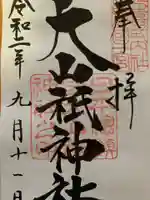 奉拝
大山祇神社
令和二年九月十一日